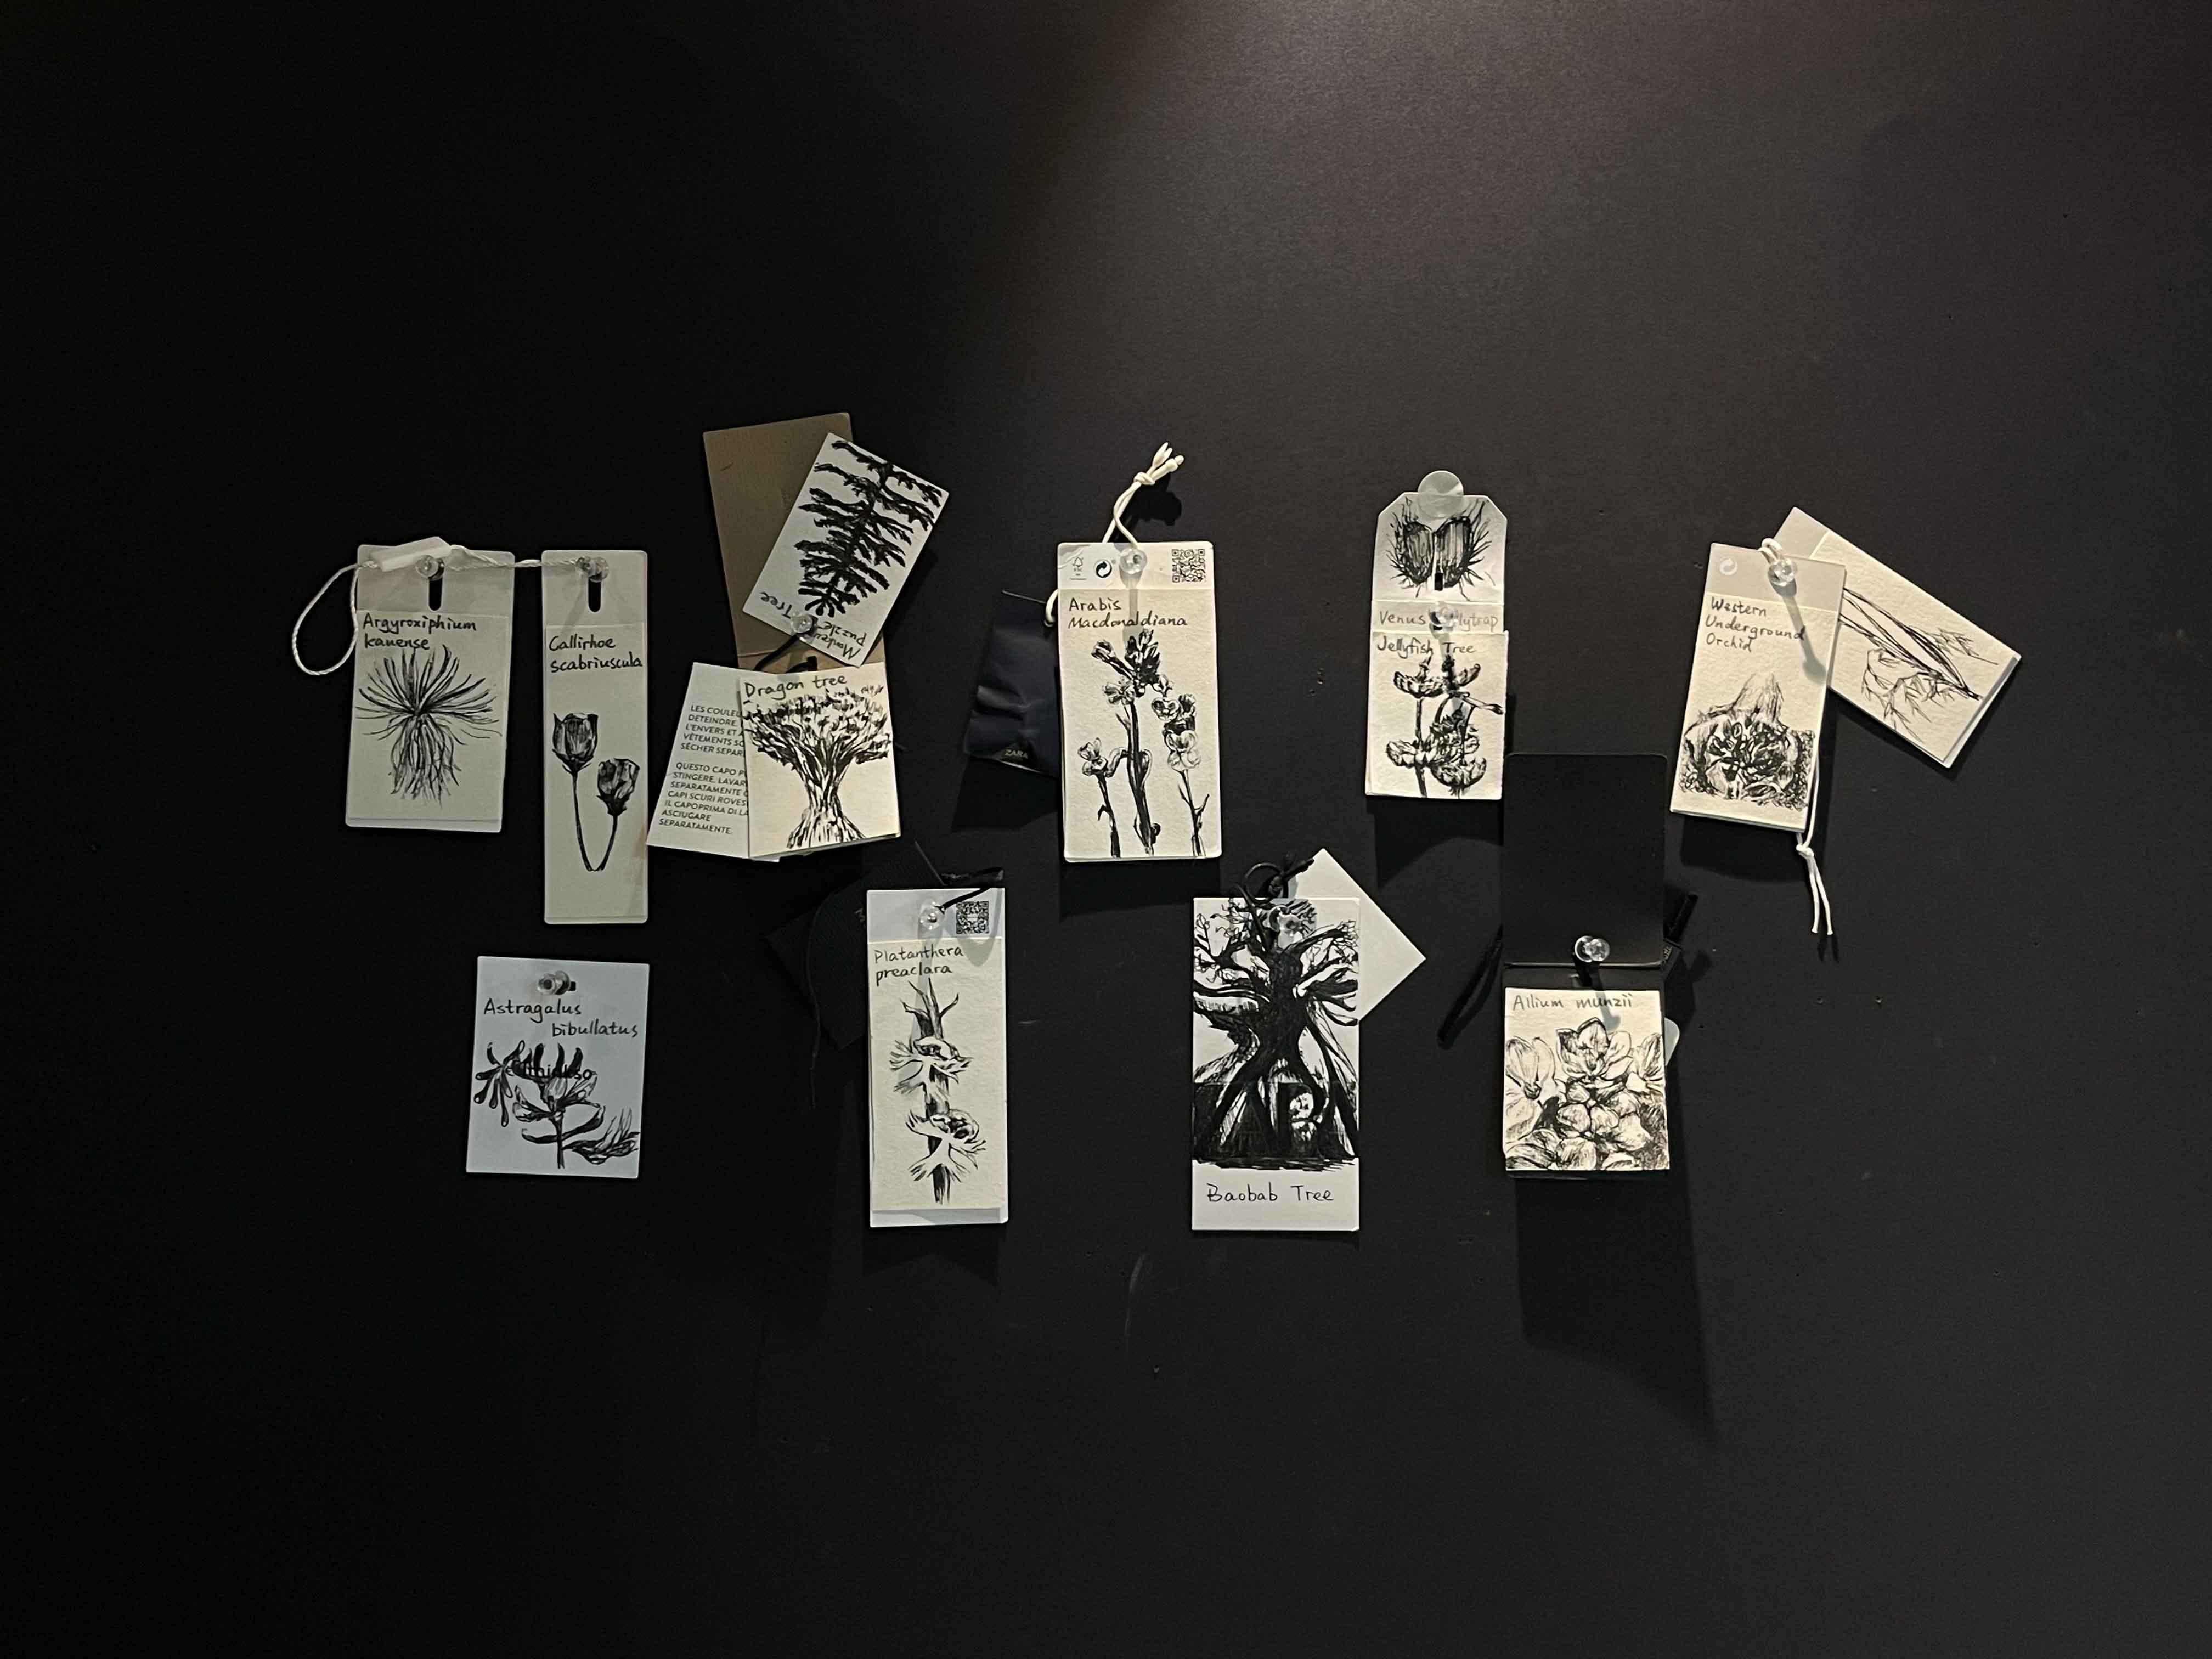 Argyroxiphium
kauense
Callirhoe
scabriuscula
Monkey
Puzzle Tree
LES COULEU
DETEINDRE.
L'ENVERS ET A
VÊTEMENTS SO
SÉCHER SEPAR
QUESTO CAPO P
STINGERE. LAVAR
SEPARATAMENTE O
CAPI SCURI ROVES
IL CAPOPRIMA DI LA
ASCIUGARE
SEPARATAMENTE.
Dragon tree
ZARA
Arabis
Macdonaldiana
Venus
Jellyfish Tree
Western
Underground
Orchid
Astragalus
bibullatus
Platanthera
preaclara
Baobab Tree
Allium munzii